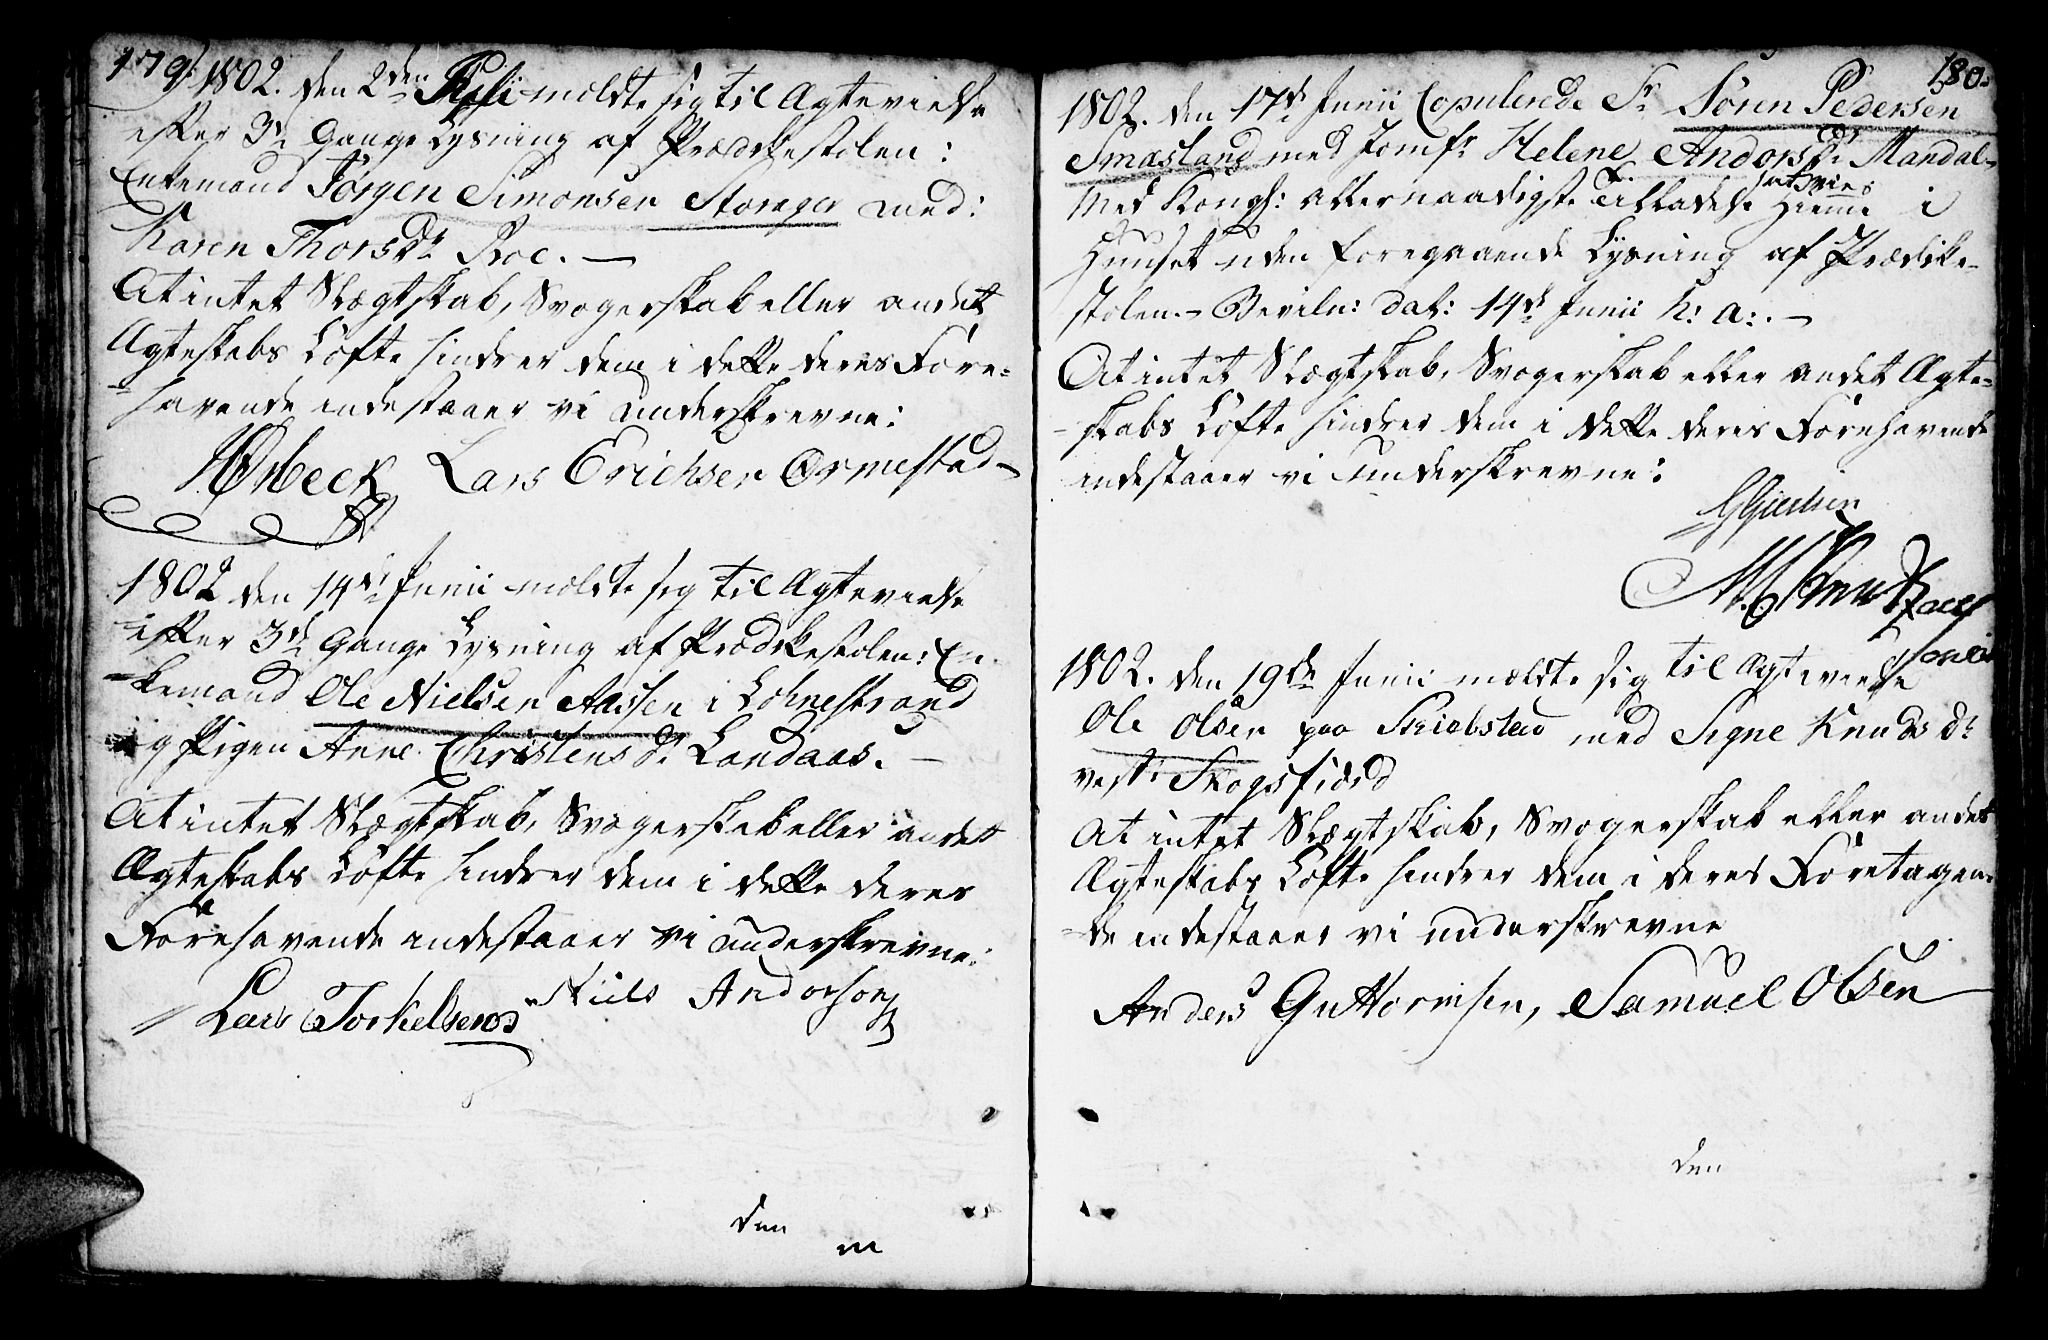 179.
1802. den 2den Juni meldte sig til Ægtevielse
efter 3de Gange Lysning af Prædikestolen:
Enkemand Jørgen Simonsen Storager med:
Karen Thorsdr Roe. —
At intet Slægtskab, Svogerskab eller andet
Ægteskabs Løfte hindrer dem i dette deres Fore-
havende indestaaer vi underskrevne:
Ørbeck Lars Erichsen Ormestad
1802 den 14de Junii meldte sig til Ægtevielse
efter 3de Gange Lysning af Prædikestolen: En-
kemand Ole Nielsen Aassen i Lohnestrand
og Pigen Anne Christensdr Landaas. —
At intet Slægtskab, Svogerskab eller andet
Ægteskabs Løfte hindrer dem i dette deres
Forehavende indestaaer vi underskrevne:
Lars Torkelsen Niels Anderson
den
180.
1802. den 17de Junii Copulerede Sr Søren Pedersen
Smæsland med Jomfr Helene Andorsdr Mandal
Med Kongl: allernaadigste Tilladelse at vies Hiemme i
Huuset uden foregaaende Lysning af Prædike-
stolen. — Beviln: dat: 14de Junii h: a: . —
At intet Slægtskab, Svogerskab eller andet Ægte-
skabs Løfte hindrer dem i dette deres Forehavende
indestaaer vi underskrevne:
1802. den 19de Junii meldte sig til Ægtevielse
Ole Olsen paa Skiebstad med Signe Knudsdr
vest: Skogsfiord
At intet Slægtskab, Svogerskab eller andet
Ægteskabs Løfte hindrer dem i deres Foretagen-
de indestaaer vi underskrevne
Anders Guttormsen, Samuel Olsen
den